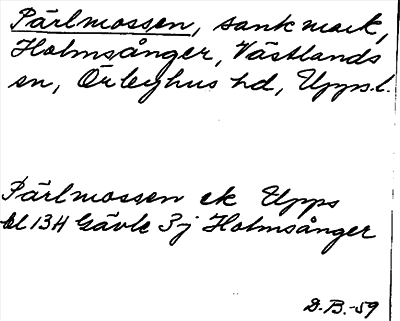 Pärlmossen, sank mark,
Holmsånger, Västlands
sn, Örbyhus hd, Upps. l.
Pärlmossen ek Upps
bl 13H Gävle 3j Holmsånger
D.B.-59